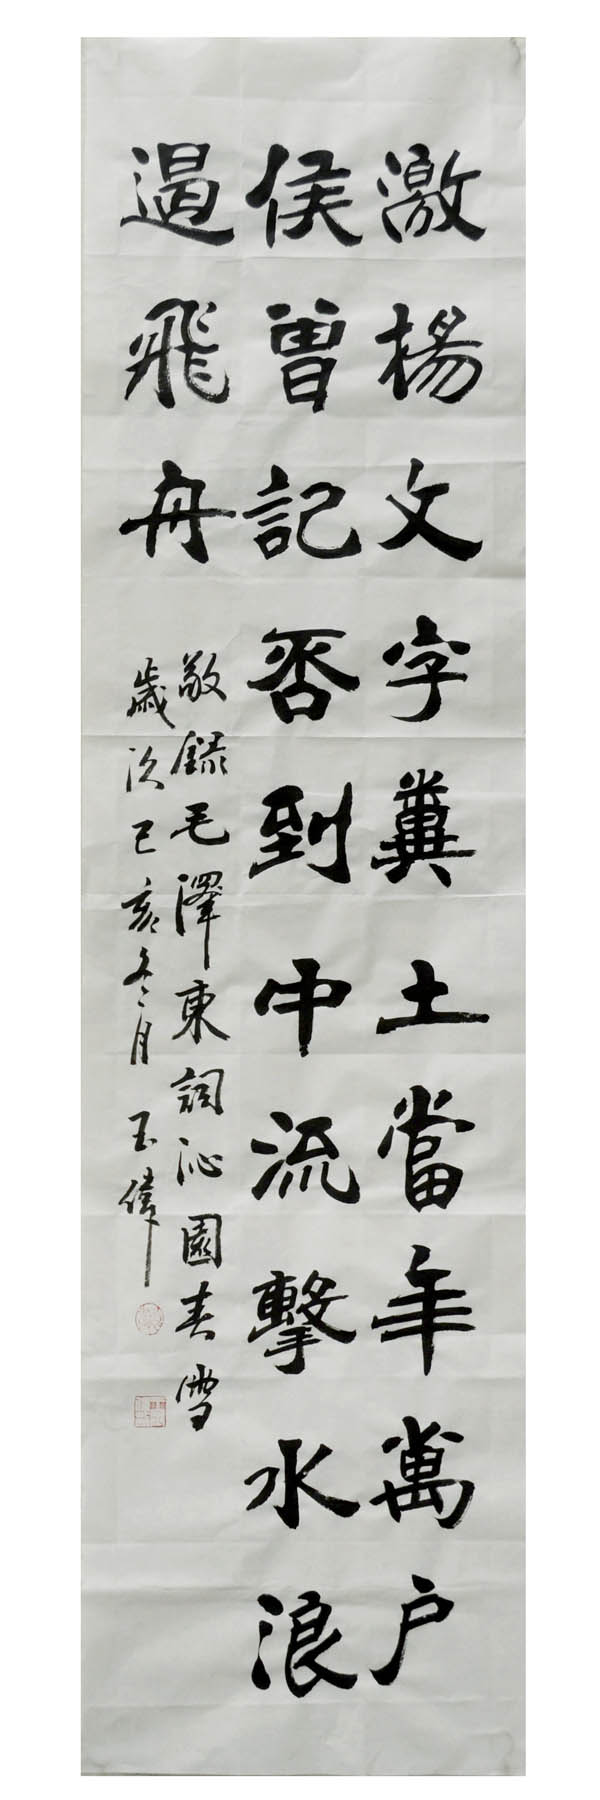 激楊文字糞土當年萬户
侯曾記否到中流擊水浪
遏飛舟
敬録毛澤東詞沁園春雪
歲次己亥冬月 玉偉